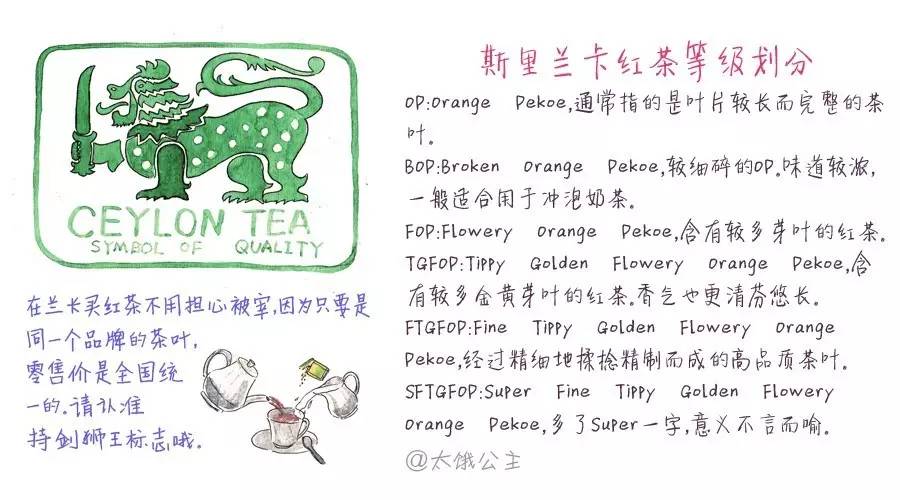 CEYLON TEA
SYMBOL OF QUALITY
在兰卡买红茶不用担心被宰,因为只要是
同一个品牌的茶叶,
零售价是全国统
一的.请认准
持剑狮王标志哦.
斯里兰卡红茶等级划分
OP:Orange Pekoe,通常指的是叶片较长而完整的茶
叶.
BOP:Broken Orange Pekoe,较细碎的OP.味道较浓,
一般适合用于冲泡奶茶.
FOP:Flowery Orange Pekoe,含有较多芽叶的红茶.
TGFOP:Tippy Golden Flowery Orange Pekoe,含
有较多金黄芽叶的红茶.香气也更清芬悠长.
FTGFOP:Fine Tippy Golden Flowery Orange
Pekoe,经过精细地揉捻精制而成的高品质茶叶.
SFTGFOP:Super Fine Tippy Golden Flowery
Orange Pekoe,多了Super一字,意义不言而喻.
@太饿公主